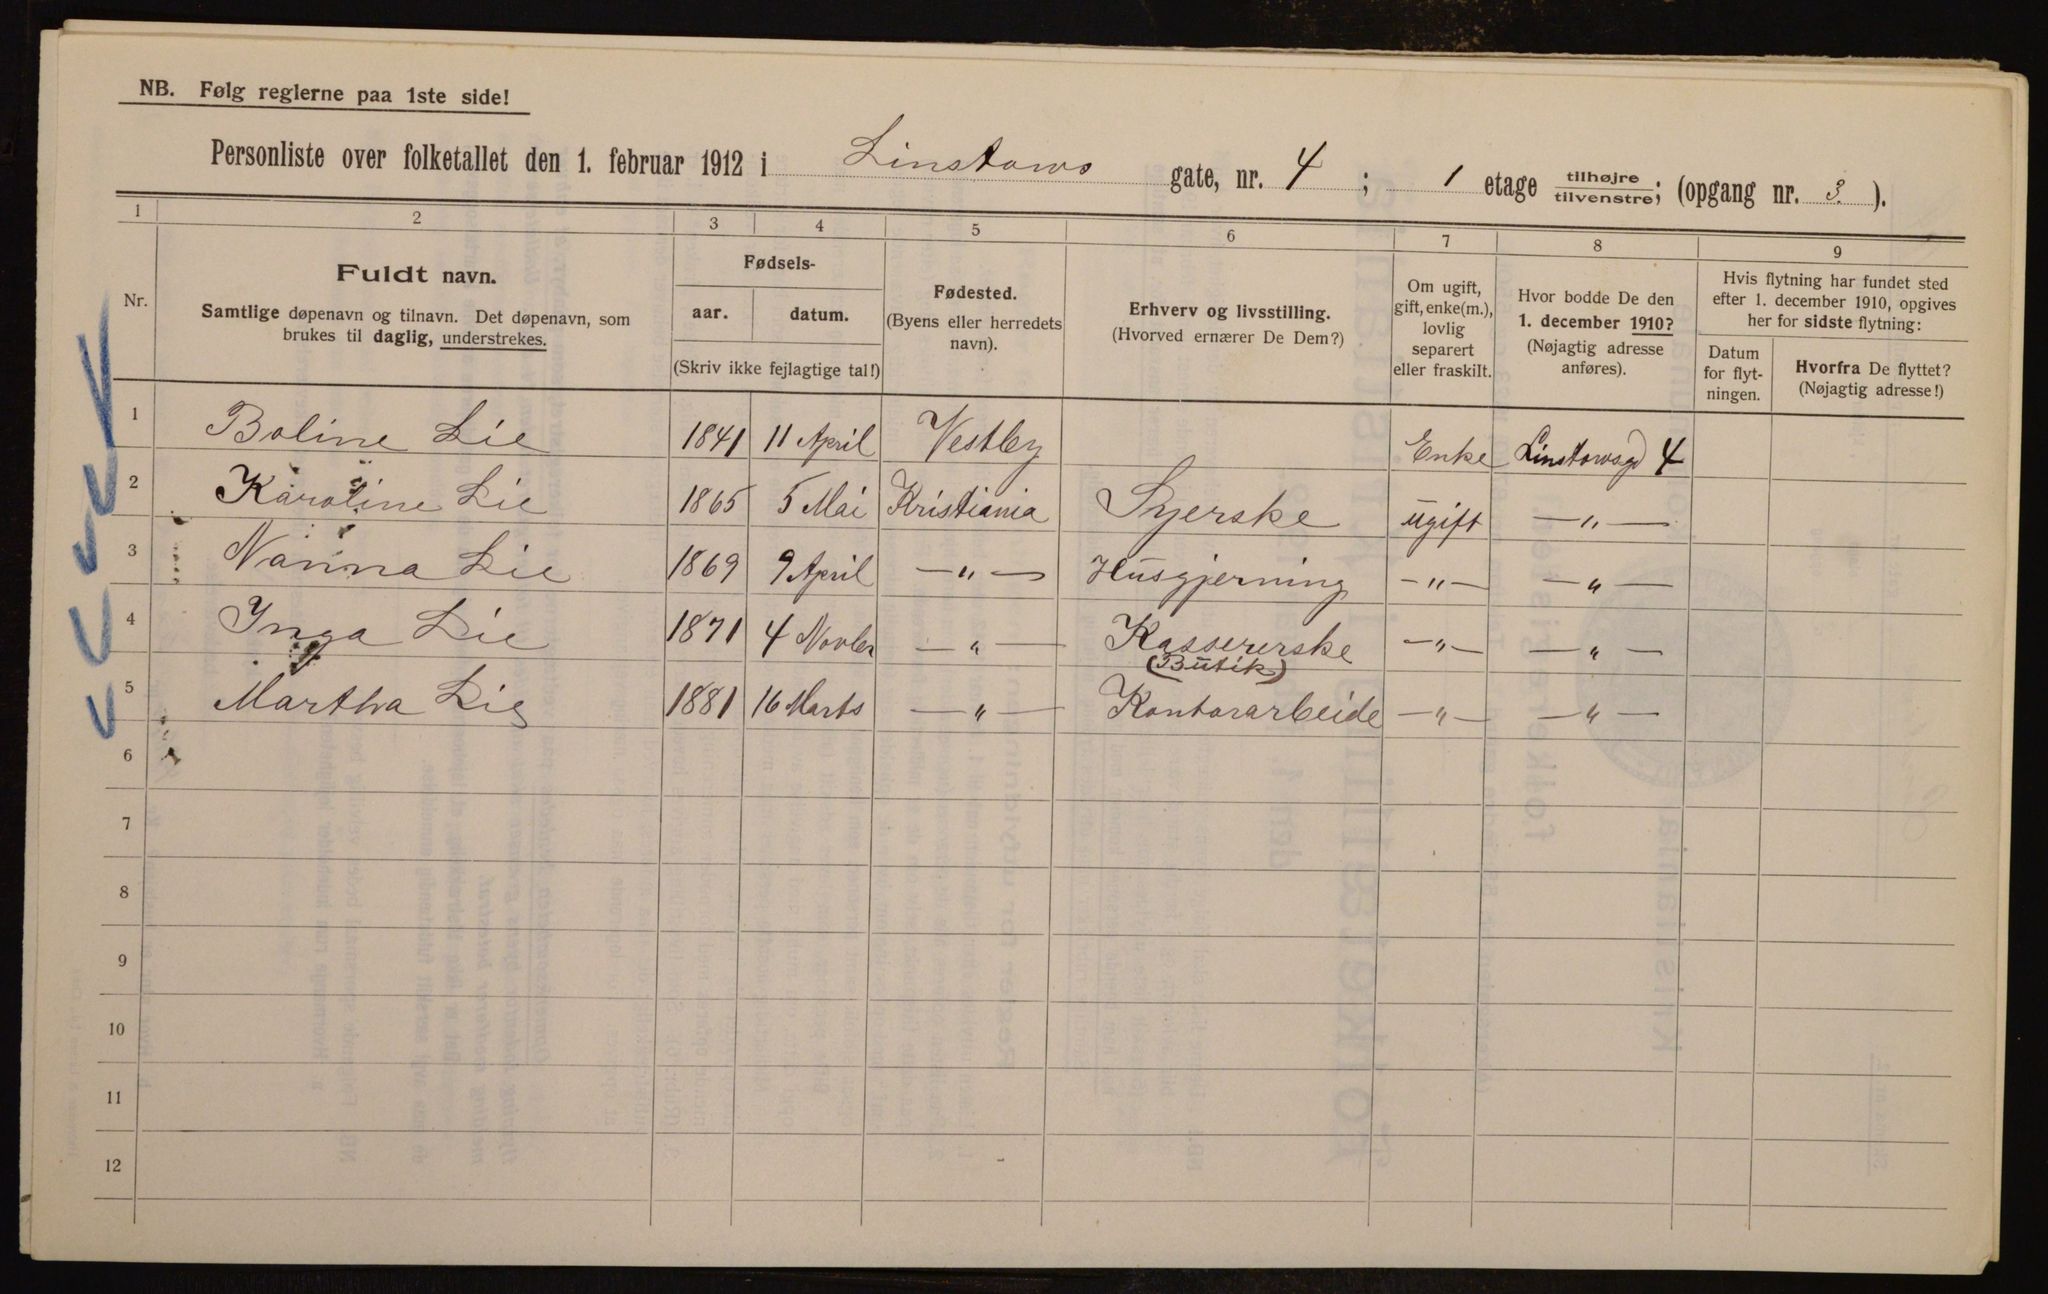 NB. Følg reglerne paa 1ste side!
Personliste over folketallet den 1. februar 1912 i Linstows gate, nr. 4 ; 1 etage tilhøjre/tilvenstre; (opgang nr. 3. ).
1 2 3 4 5 6 7 8 9
Nr.
Fuldt navn.
Samtlige døpenavn og tilnavn. Det døpenavn, som
brukes til daglig, understrekes.
Fødsels-
aar. datum.
(Skriv ikke fejlagtige tal!)
Fødested.
(Byens eller herredets
navn).
Erhverv og livsstilling.
(Hvorved ernærer De Dem?)
Om ugift,
gift, enke(m.),
lovlig
separert
eller fraskilt.
Hvor bodde De den
1. december 1910?
(Nøjagtig adresse
anføres).
Hvis flytning har fundet sted
efter 1. december 1910, opgives
her for sidste flytning:
Datum
for flyt-
ningen.
Hvorfra De flyttet?
(Nøjagtig adresse!)
1 Boline Lie 1841 11 April Vestby Enke Linstowsgd 4
2 Karoline Lie 1865 5 Mai Kristiania Syerske ugift —"—
3 Nanna Lie 1869 9 April —"— Husgjerning —"— —"—
4 Inga Lie 1871 4 Novbr —"— Kassererske —"— —"—
(Butik)
5 Martha Lie 1881 16 Marts —"— Kontorarbeide —"— —"—
6
7
8
9
10
11
12